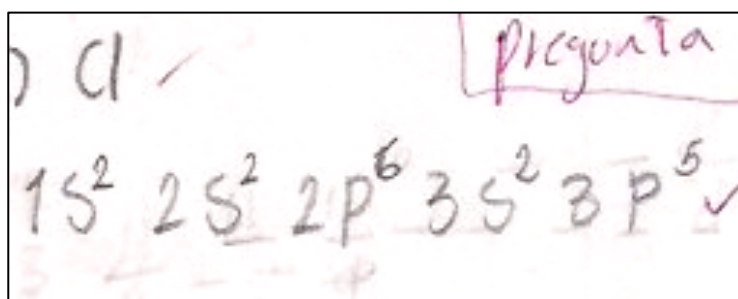 ) Cl
pregunta
1s² 2s² 2p⁶ 3s² 3p⁵